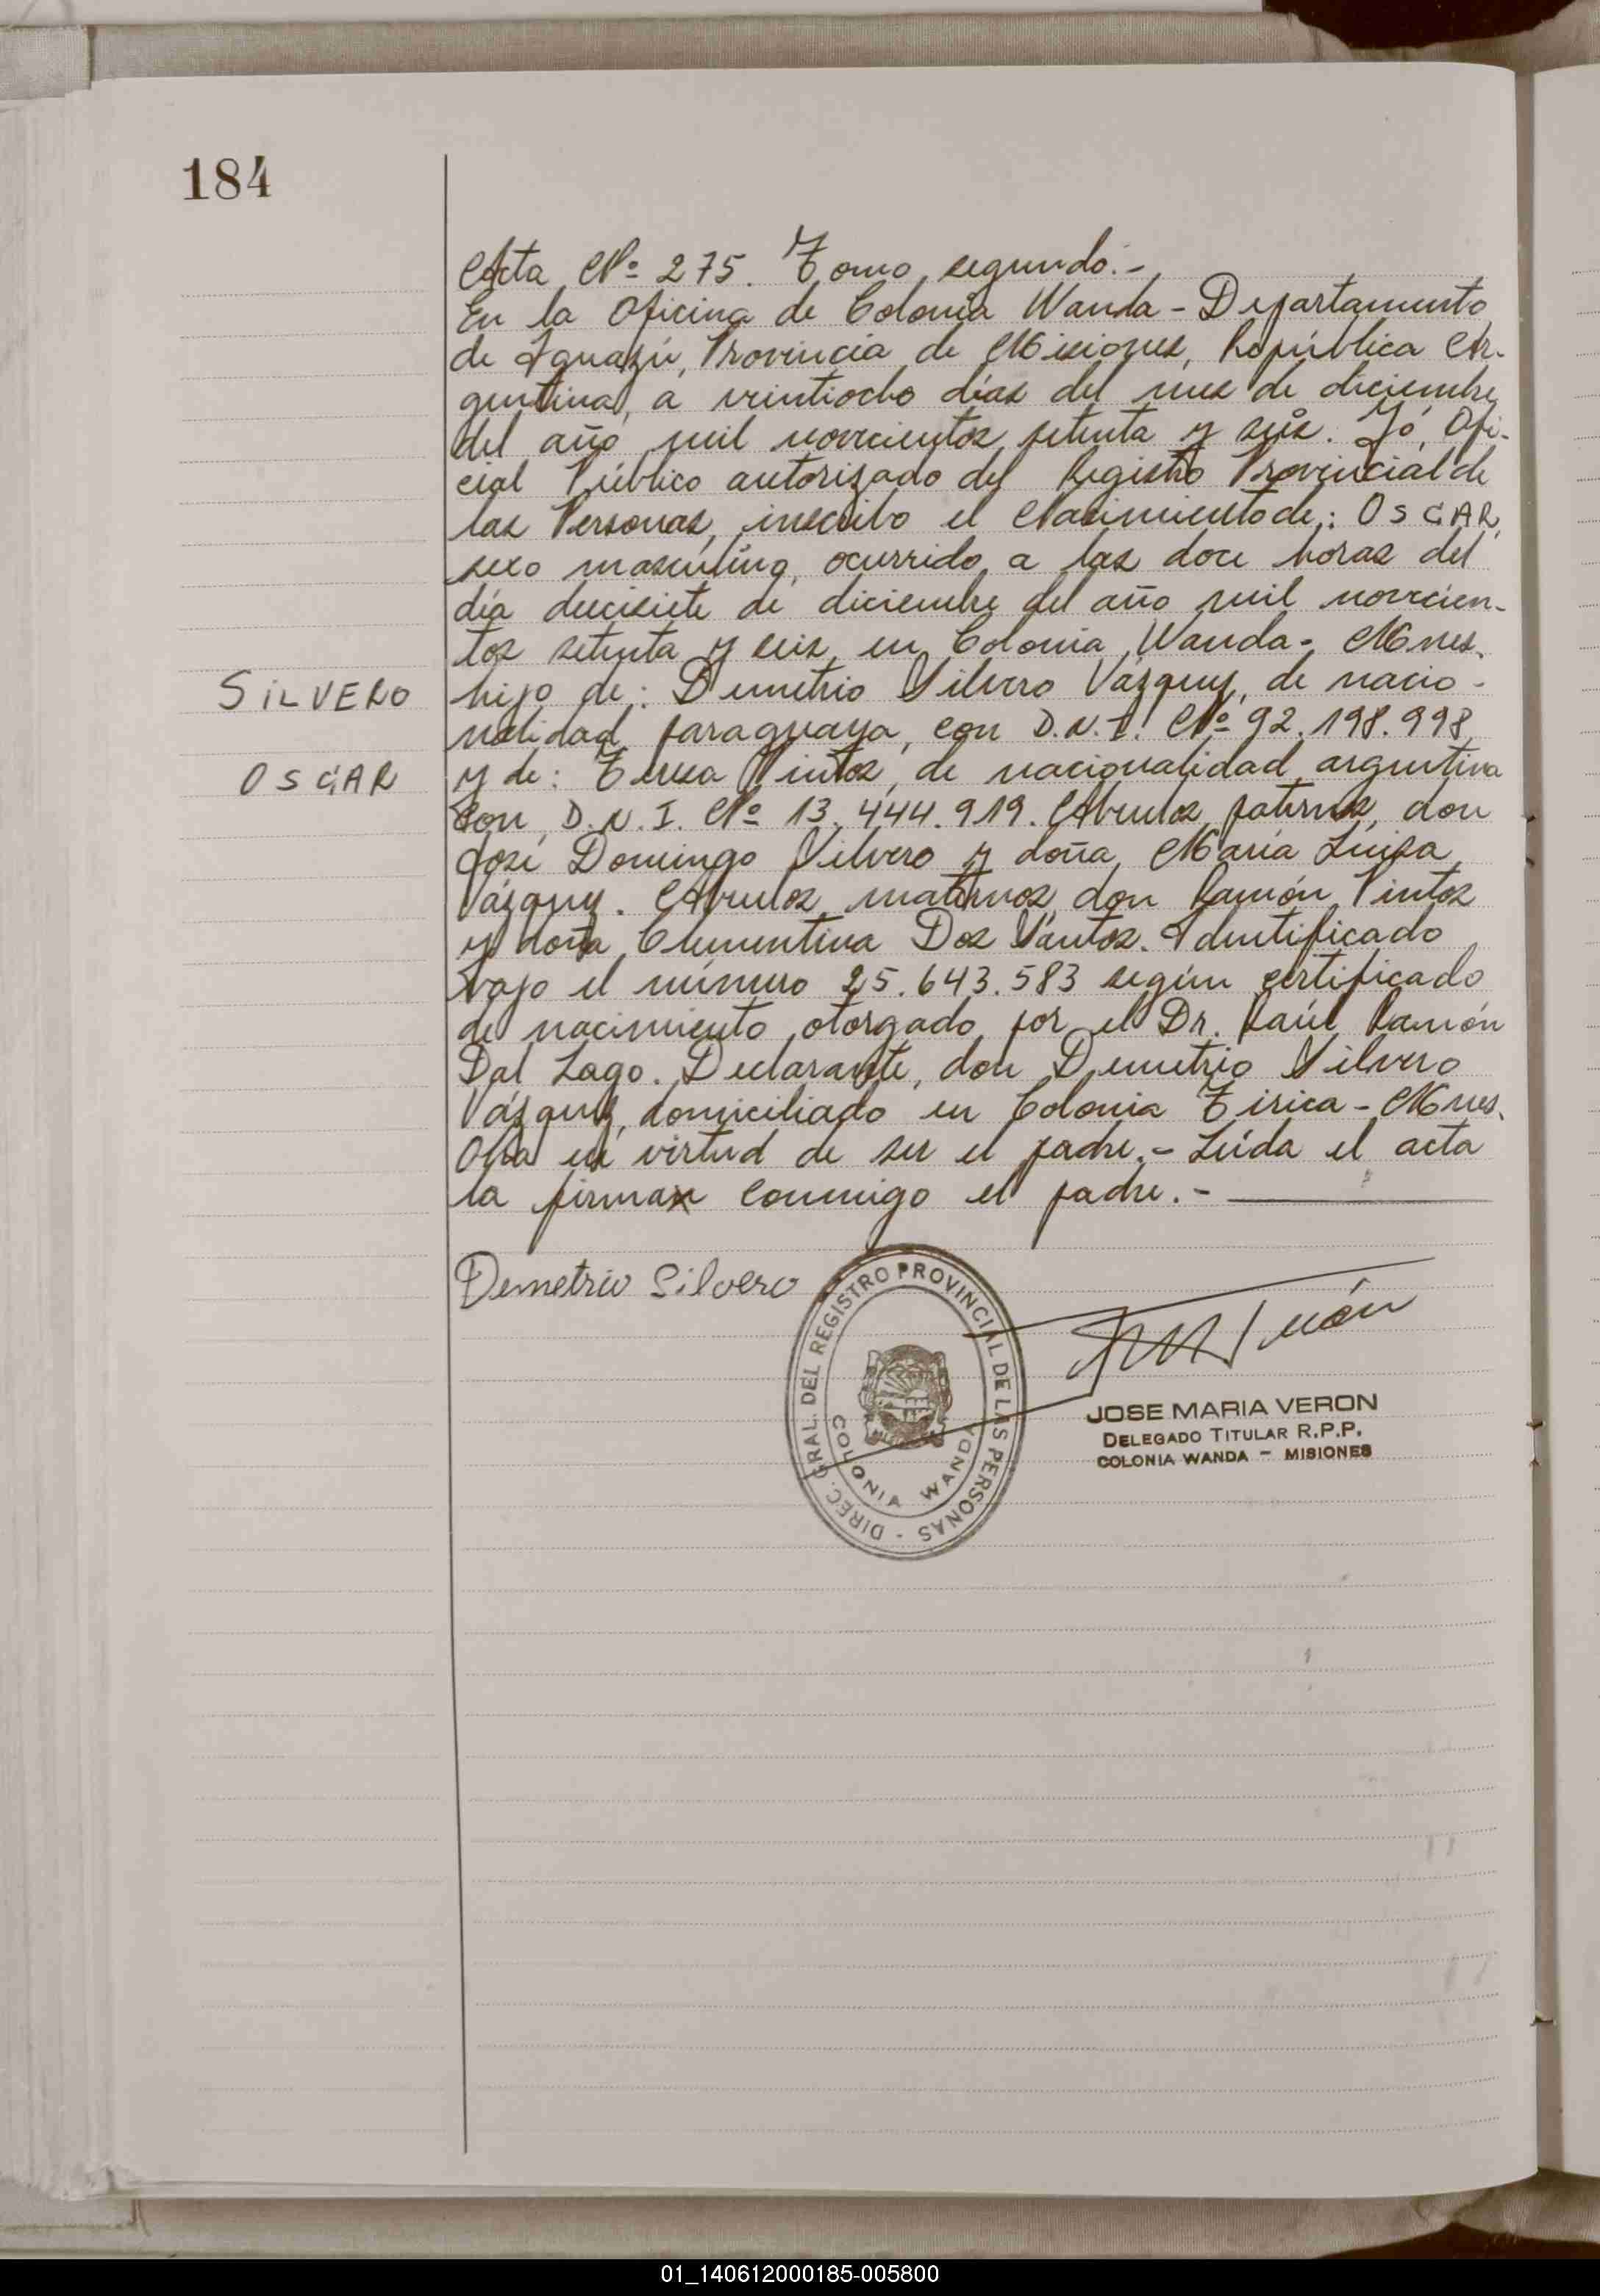 184
Acta Nº 275. Tomo segundo.-
En la Oficina de Colonia Wanda - Departamento
de Iguazú, Provincia de Misiones, República Ar-
gentina, a veintiocho días del mes de diciembre
del año mil novecientos setenta y seis. Yó, Ofi-
cial Público autorizado del Registro Provincial de
las Personas, inscribo el Nacimiento de: OSCAR,
sexo masculino, ocurrido a las doce horas del
día diecisiete de diciembre del año mil novecien-
tos setenta y seis en Colonia Wanda - Mnes.
SILVERO
hijo de: Demetrio Silvero Vázquez, de nacio-
nalidad paraguaya, con D.N.I. Nº 92.198.998
OSCAR
y de: Teresa Pintos, de nacionalidad argentina
con D.N.I. Nº 13.444.919. Abuelos paternos, don
José Domingo Silvero y doña María Luisa
Vázquez. Abuelos maternos don Ramón Pintos
y doña Clementina Dos Santos. Identificado
bajo el número 25.643.583 según certificado
de nacimiento otorgado por el Dr. Raúl Ramón
Dal Lago. Declarante, don Demetrio Silvero
Vázquez, domiciliado en Colonia Tirica - Mnes.
Obra en virtud de ser el padre.- Leída el acta
la firma conmigo el padre.-
Demetrio Silvero
DIREC. GRAL. DEL REGISTRO PROVINCIAL DE LAS PERSONAS -
COLONIA WANDA
JOSE MARIA VERON
DELEGADO TITULAR R.P.P.
COLONIA WANDA - MISIONES
01_140612000185-005800